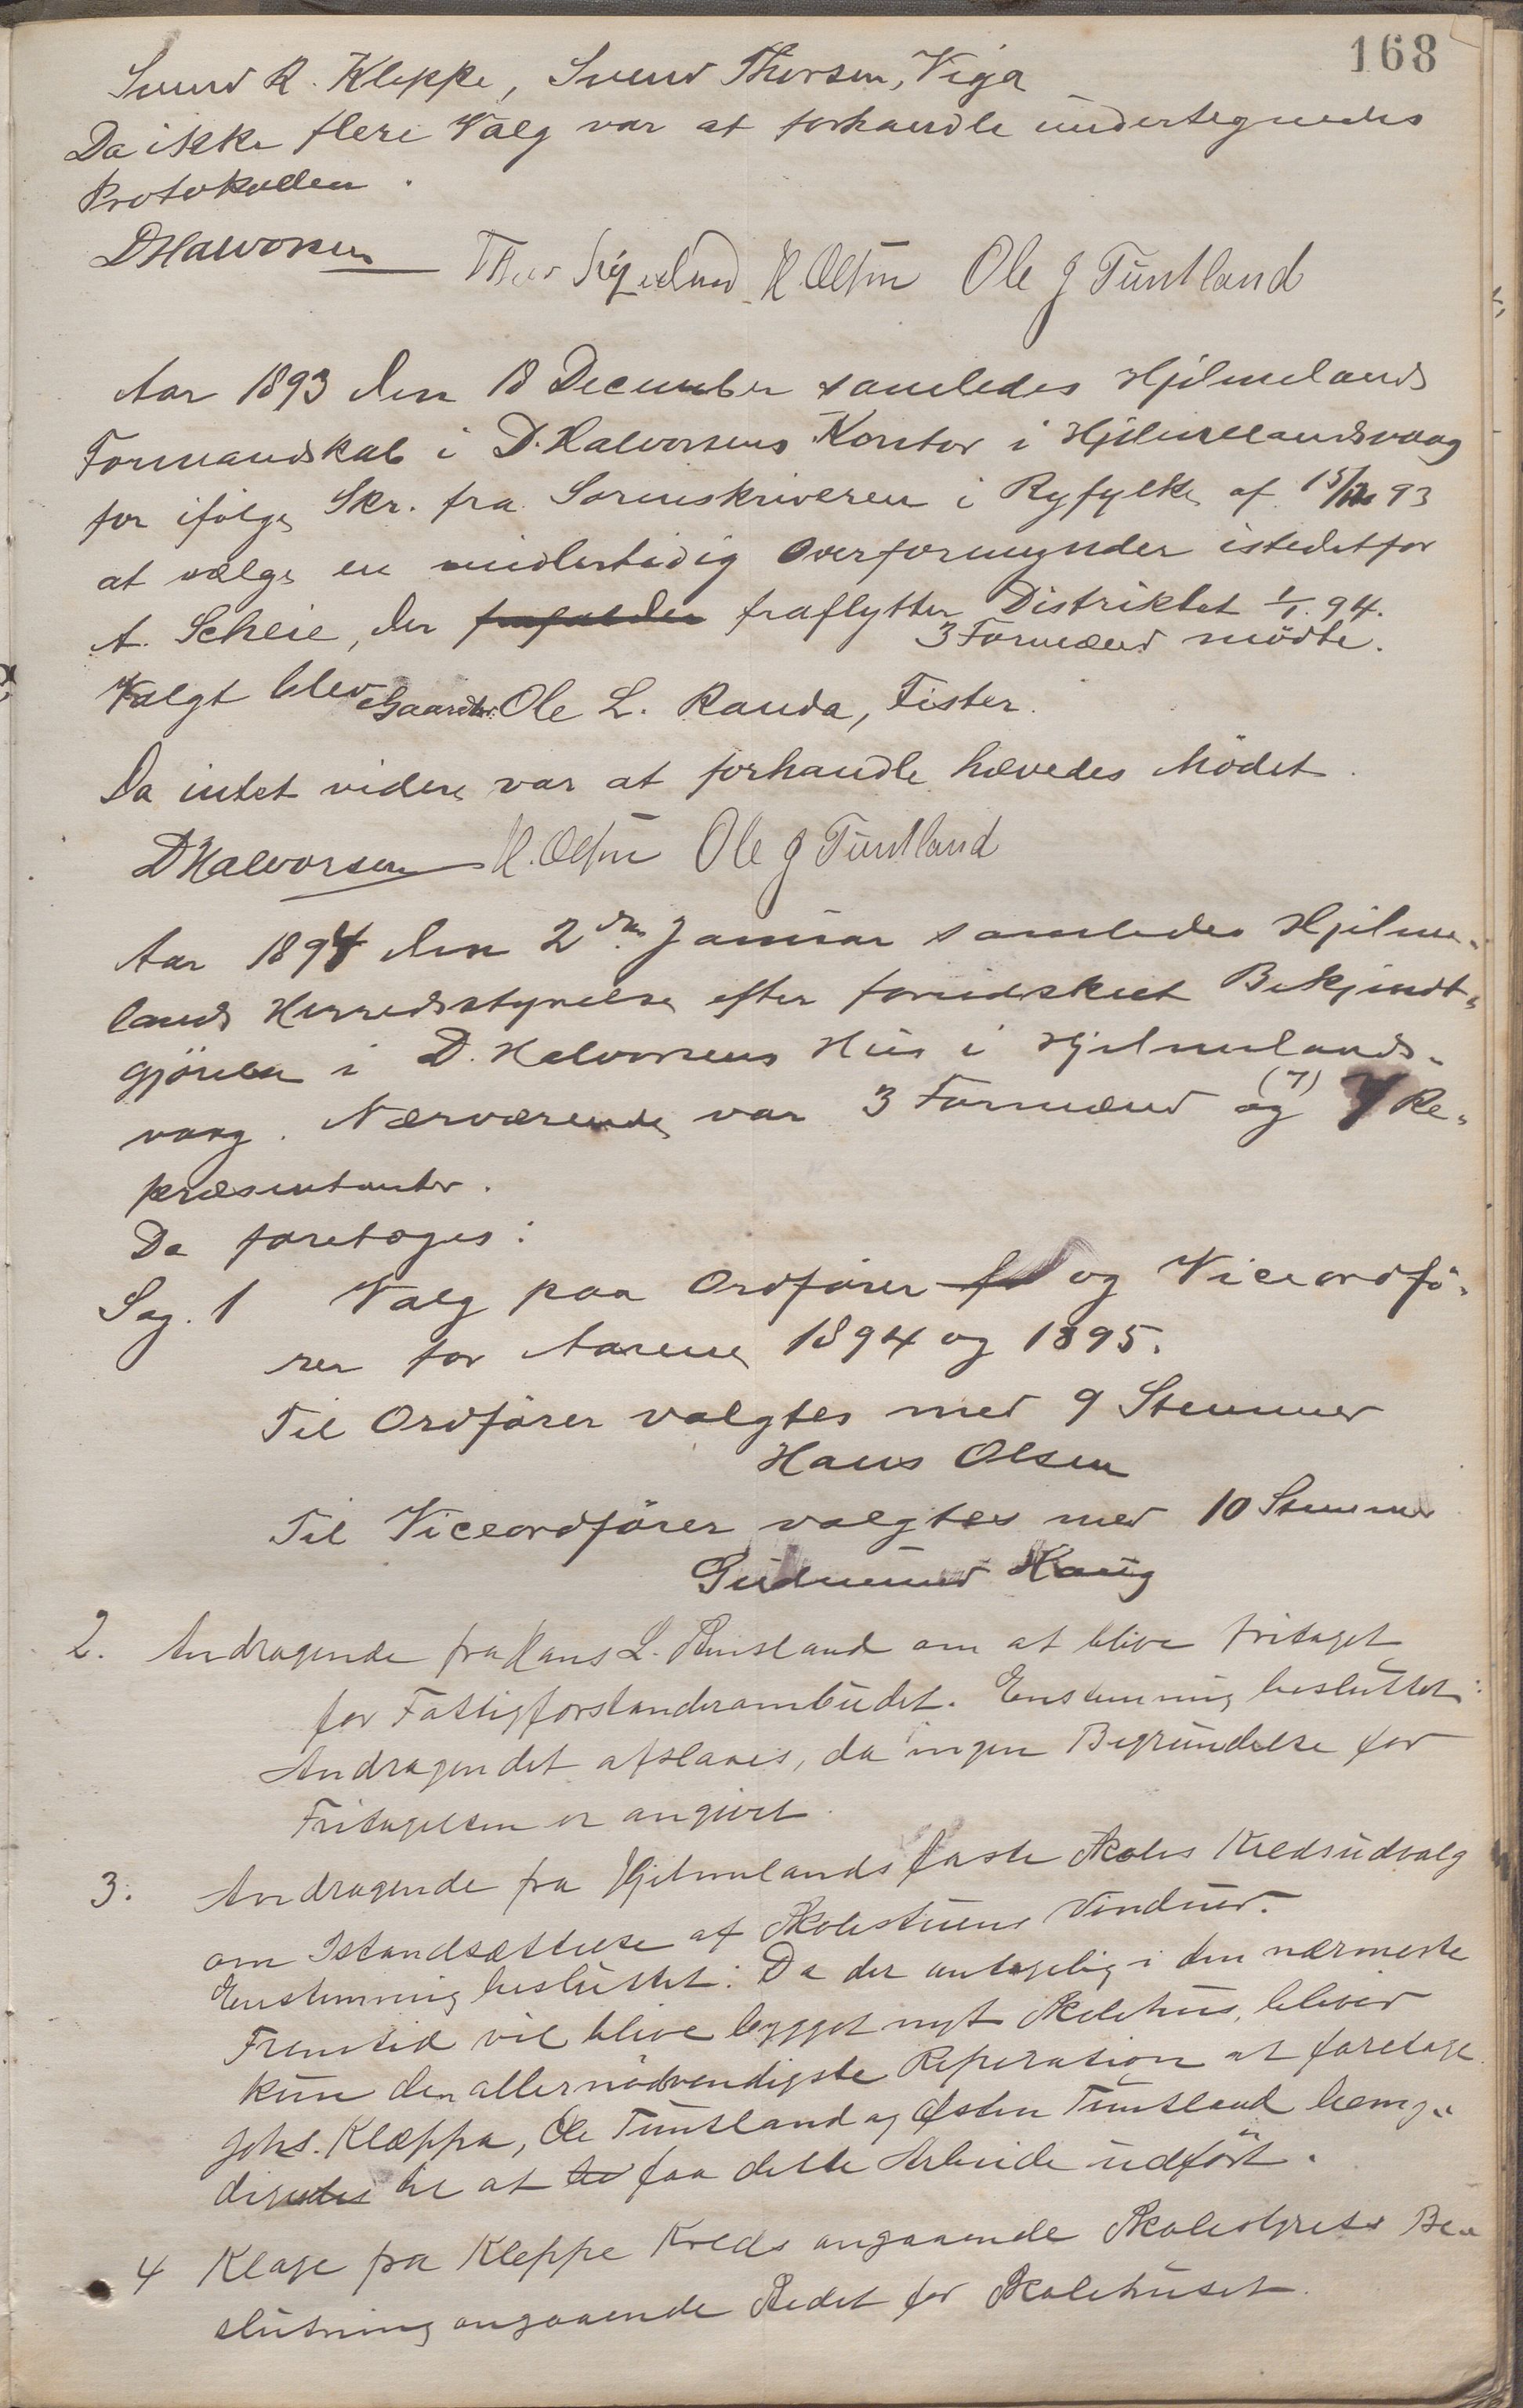 168
Svend R. Kleppe, Svend Thorsen, Viga
Da ikke flere Valg var at forhandle undertegnedes
Protokollen.
DHalvorsen H. Olsen Ole J Tuntland
Aar 1893 den 18 December samledes Hjelmelands
Formandskab i D. Halvorsens Kontor i Hjelmelandsvaag
for ifølge Skr. fra Sorenskriveren i Ryfylke af 15/12 93
at vælge en midlertidig Overformynder istedetfor
A. Scheie, der fraflytter Distriktet 1/1. 94.
3 Formænd mödte.
Valgt blev Gaardbr. Ole L. Randa, Fister.
Da intet videre var at forhandle hævedes Mödet.
DHalvorsen H. Olsen Ole J Tuntland
Aar 1894 den 2den Januar samledes Hjelme-
lands Herredsstyrelse efter forudskeet Bekjendt-
gjörelse i D. Halvorsens Hus i Hjelmelands-
vaag. Nærværende var 3 Formænd og (7) 7 Re-
præsentanter.
Da foretoges:
Sag. 1 Valg paa Ordförer og Viceordfö-
rer for Aarene 1894 og 1895.
Til Ordförer valgtes med 9 Stemmer
Hans Olsen
Til Viceordförer valgtes med 10 Stemmer
Gudmund Haug
2. Andragende fra Hans L. om at blive fritaget
for Fattigforstanderombudet. Enstemmig besluttet:
Andragendet afslaaes, da ingen Begrundelse for
Fritagelsen er angivet.
3. Andragende fra Hjelmelands faste Skoles Kredsudvalg
om Istandsættelse af Skolestuens Vinduer.
Enstemmig besluttet: Da der antagelig i den nærmeste
Fremtid vil blive bygget nyt Skolehus, bliver
kun den allernödvendigste Reparation at foretage.
Johs. Kleppa, Ole Tuntland og Østen Tuntland bemyn-
digedes til at faa dette Arbeide udfört.
4 Klage fra Kleppe Kreds angaaende Skolestyrets Be-
slutning angaaende Stedet for Skolehuset.